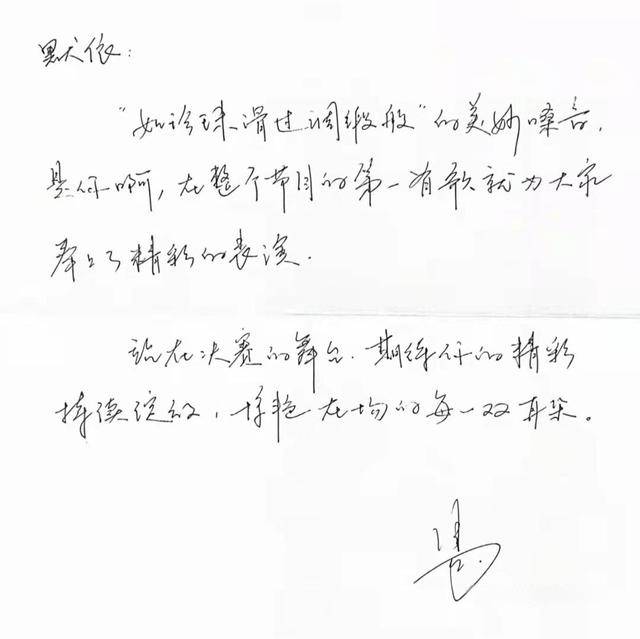 默侬：
"如珍珠滑过绸缎般"的美妙嗓音，
是你啊，在整个节目的第一首歌就为大家
奉上了精彩的表演.
站在决赛的舞台. 期待你的精彩
持续绽放，惊艳在场的每一双耳朵。